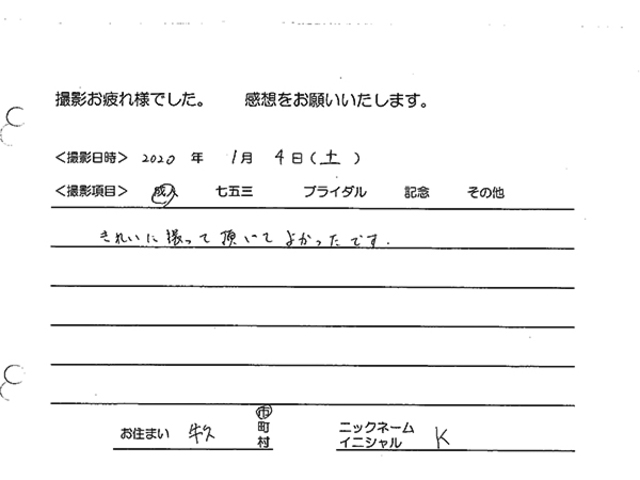 撮影お疲れ様でした。 感想をお願いいたします。
<撮影日時> 2020 年 1月 4日(土)
<撮影項目> 成人 七五三 ブライダル 記念 その他
きれいに撮って頂いてよかったです.
お住まい 牛久 市町村 ニックネーム イニシャル K